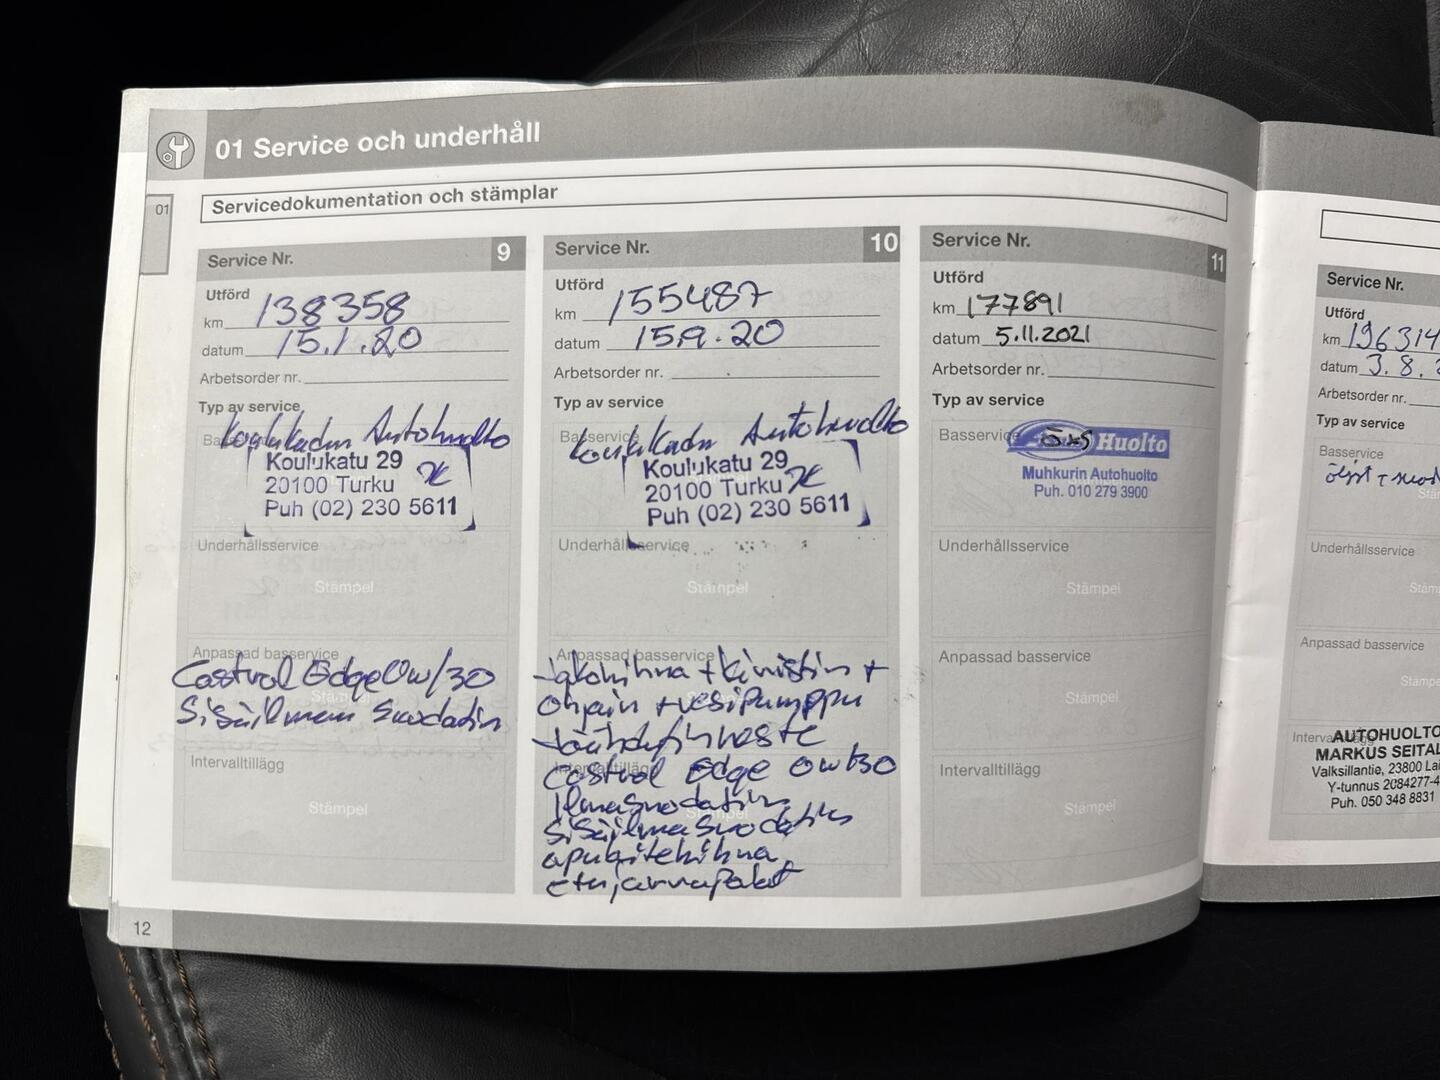 01 Service och underhåll
01
Servicedokumentation och stämplar
Service Nr. 9
Utförd
km 138358
datum 15.1.20
Arbetsorder nr.
Typ av service
Koulukadun Autohuolto
Koulukatu 29
20100 Turku
Puh (02) 230 5611
Underhållsservice
Stämpel
Anpassad basservice
Castrol Edge 0w/30
Sisäilman suodatin
Intervalltillägg
Stämpel
12
Service Nr. 10
Utförd
km 155487
datum 15.9.20
Arbetsorder nr.
Typ av service
Basservice
Koulukadun Autohuolto
Koulukatu 29
20100 Turku
Puh (02) 230 5611
Underhållsservice
Stämpel
Anpassad basservice
-jakohihna + kiristin +
ohjain + vesipumppu
-jäähdytinneste
Castrol Edge 0w/30
Intervalltillägg
ilmasuodatin
sisäilmasuodatin
apulaitehihna
etujarrupalat
Service Nr. 11
Utförd
km 177891
datum 5.11.2021
Arbetsorder nr.
Typ av service
Basservice
Huolto
Muhkurin Autohuolto
Puh. 010 279 3900
Underhållsservice
Stämpel
Anpassad basservice
Stämpel
Intervalltillägg
Stämpel
Service Nr.
Utförd
km 196314
datum 3.8.
Arbetsorder nr.
Typ av service
Basservice
öljyt +
Underhållsservice
Anpassad basservice
AUTOHUOLTO
MARKUS SEITAL
Valksillantie, 23800 Lai
Y-tunnus 2084277-4
Puh. 050 348 8831